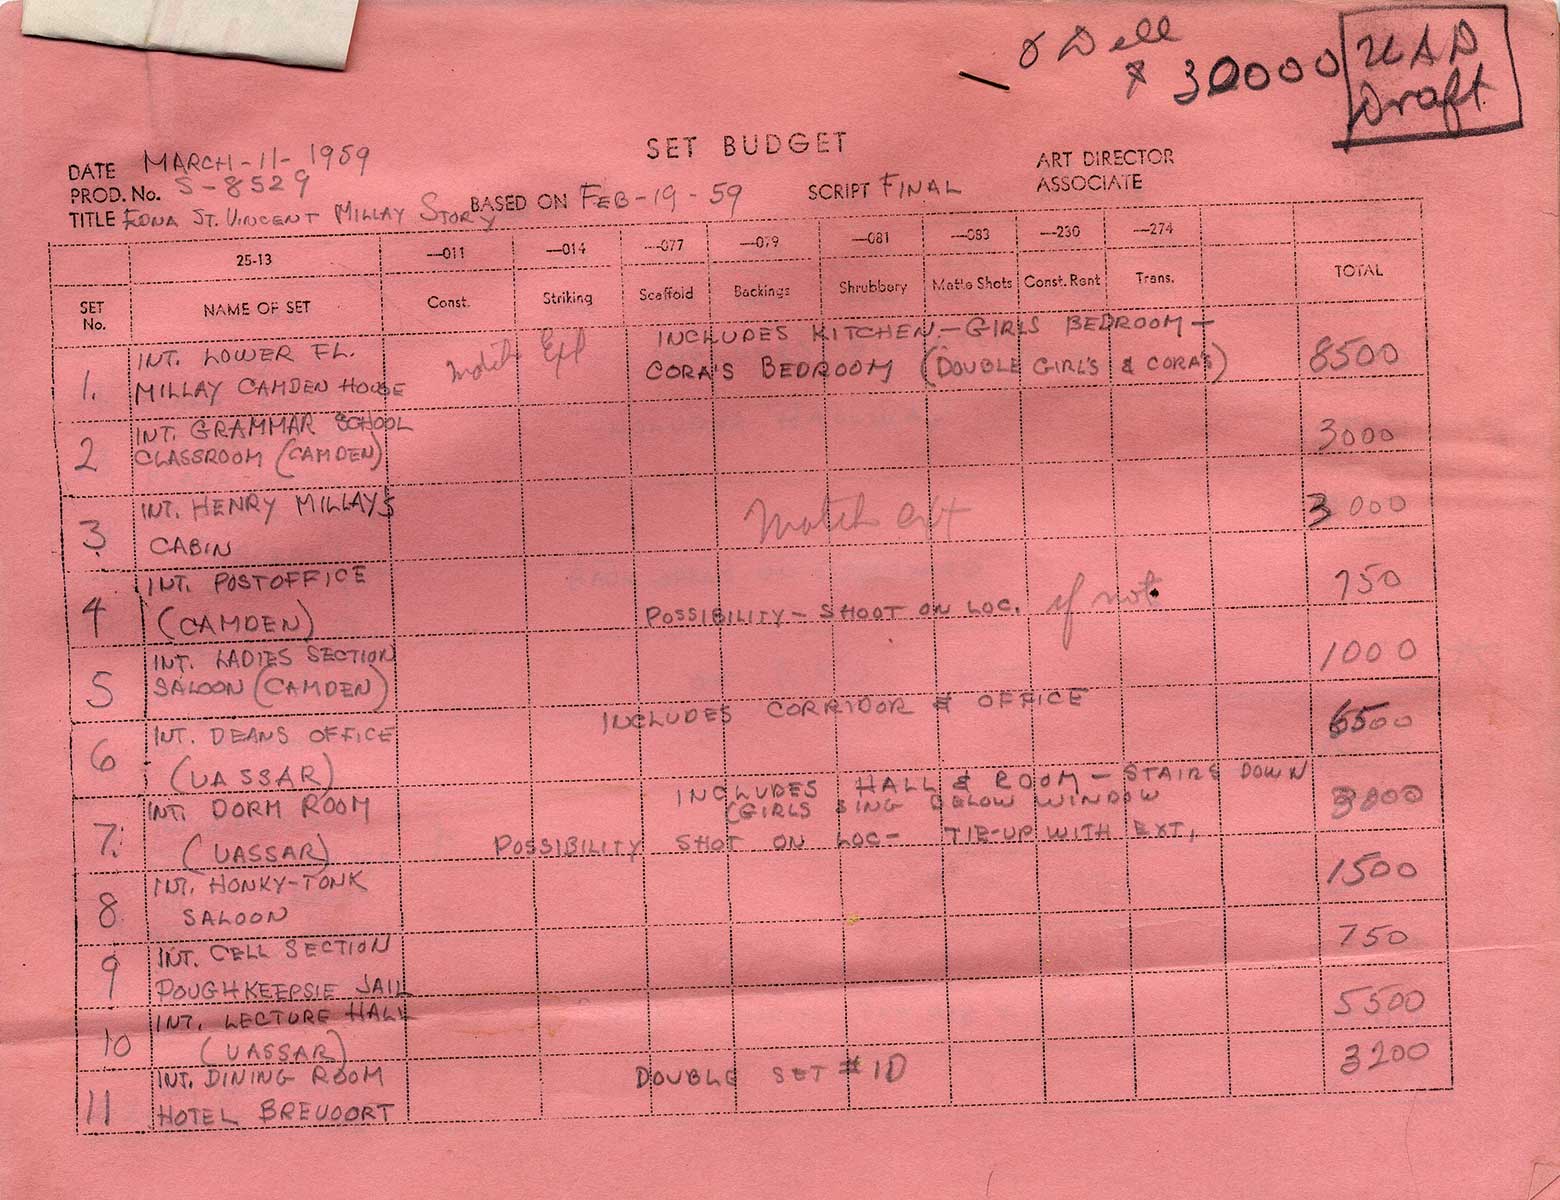 O Dell
30000
Draft
SET BUDGET
DATE MARCH-11-1959
PROD. No. S-8529
TITLE EDNA ST. VINCENT MILLAY STORY
BASED ON FEB-19-59
SCRIPT FINAL
ART DIRECTOR
ASSOCIATE
25-13 —011 —014 —077 —079 —081 —083 —230 —274
SET No. NAME OF SET Const. Striking Scaffold Backings Shrubbery Matte Shots Const. Rent Trans. TOTAL
1. INT. LOWER FL. INCLUDES KITCHEN - GIRLS BEDROOM -
MILLAY CAMDEN HOUSE CORA'S BEDROOM (DOUBLE GIRL'S & CORA'S) 8500
2 INT. GRAMMAR SCHOOL
CLASSROOM (CAMDEN) 3000
3 INT. HENRY MILLAY'S
CABIN Match ext 3000
4 INT. POSTOFFICE
(CAMDEN) POSSIBILITY - SHOOT ON LOC. if not 750
5 INT. LADIES SECTION
SALOON (CAMDEN) 1000
6 INT. DEANS OFFICE INCLUDES CORRIDOR & OFFICE
(VASSAR) 6500
7. INT. DORM ROOM INCLUDES HALL & ROOM - STAIRS DOWN
(GIRLS SING BELOW WINDOW
(VASSAR) POSSIBILITY SHOT ON LOC- TIE-UP WITH EXT,
8 INT. HONKY-TONK
SALOON 1500
9 INT. CELL SECTION
POUGHKEEPSIE JAIL 750
10 INT. LECTURE HALL
(VASSAR) 5500
11 INT. DINING ROOM DOUBLE SET #10
HOTEL BREVOORT 3200